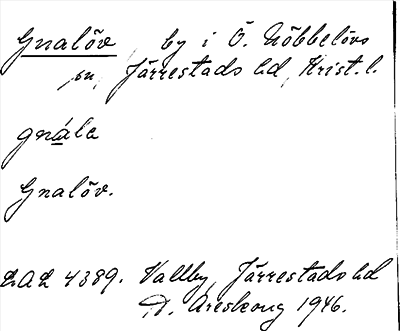 Gnalöv by i Ö. Nöbbelövs
sn, Järrestads hd, Krist. l.
gnála
Gnalöv.
LAL 4389. Vallby, Järrestads hd
D. Areskoug 1946.